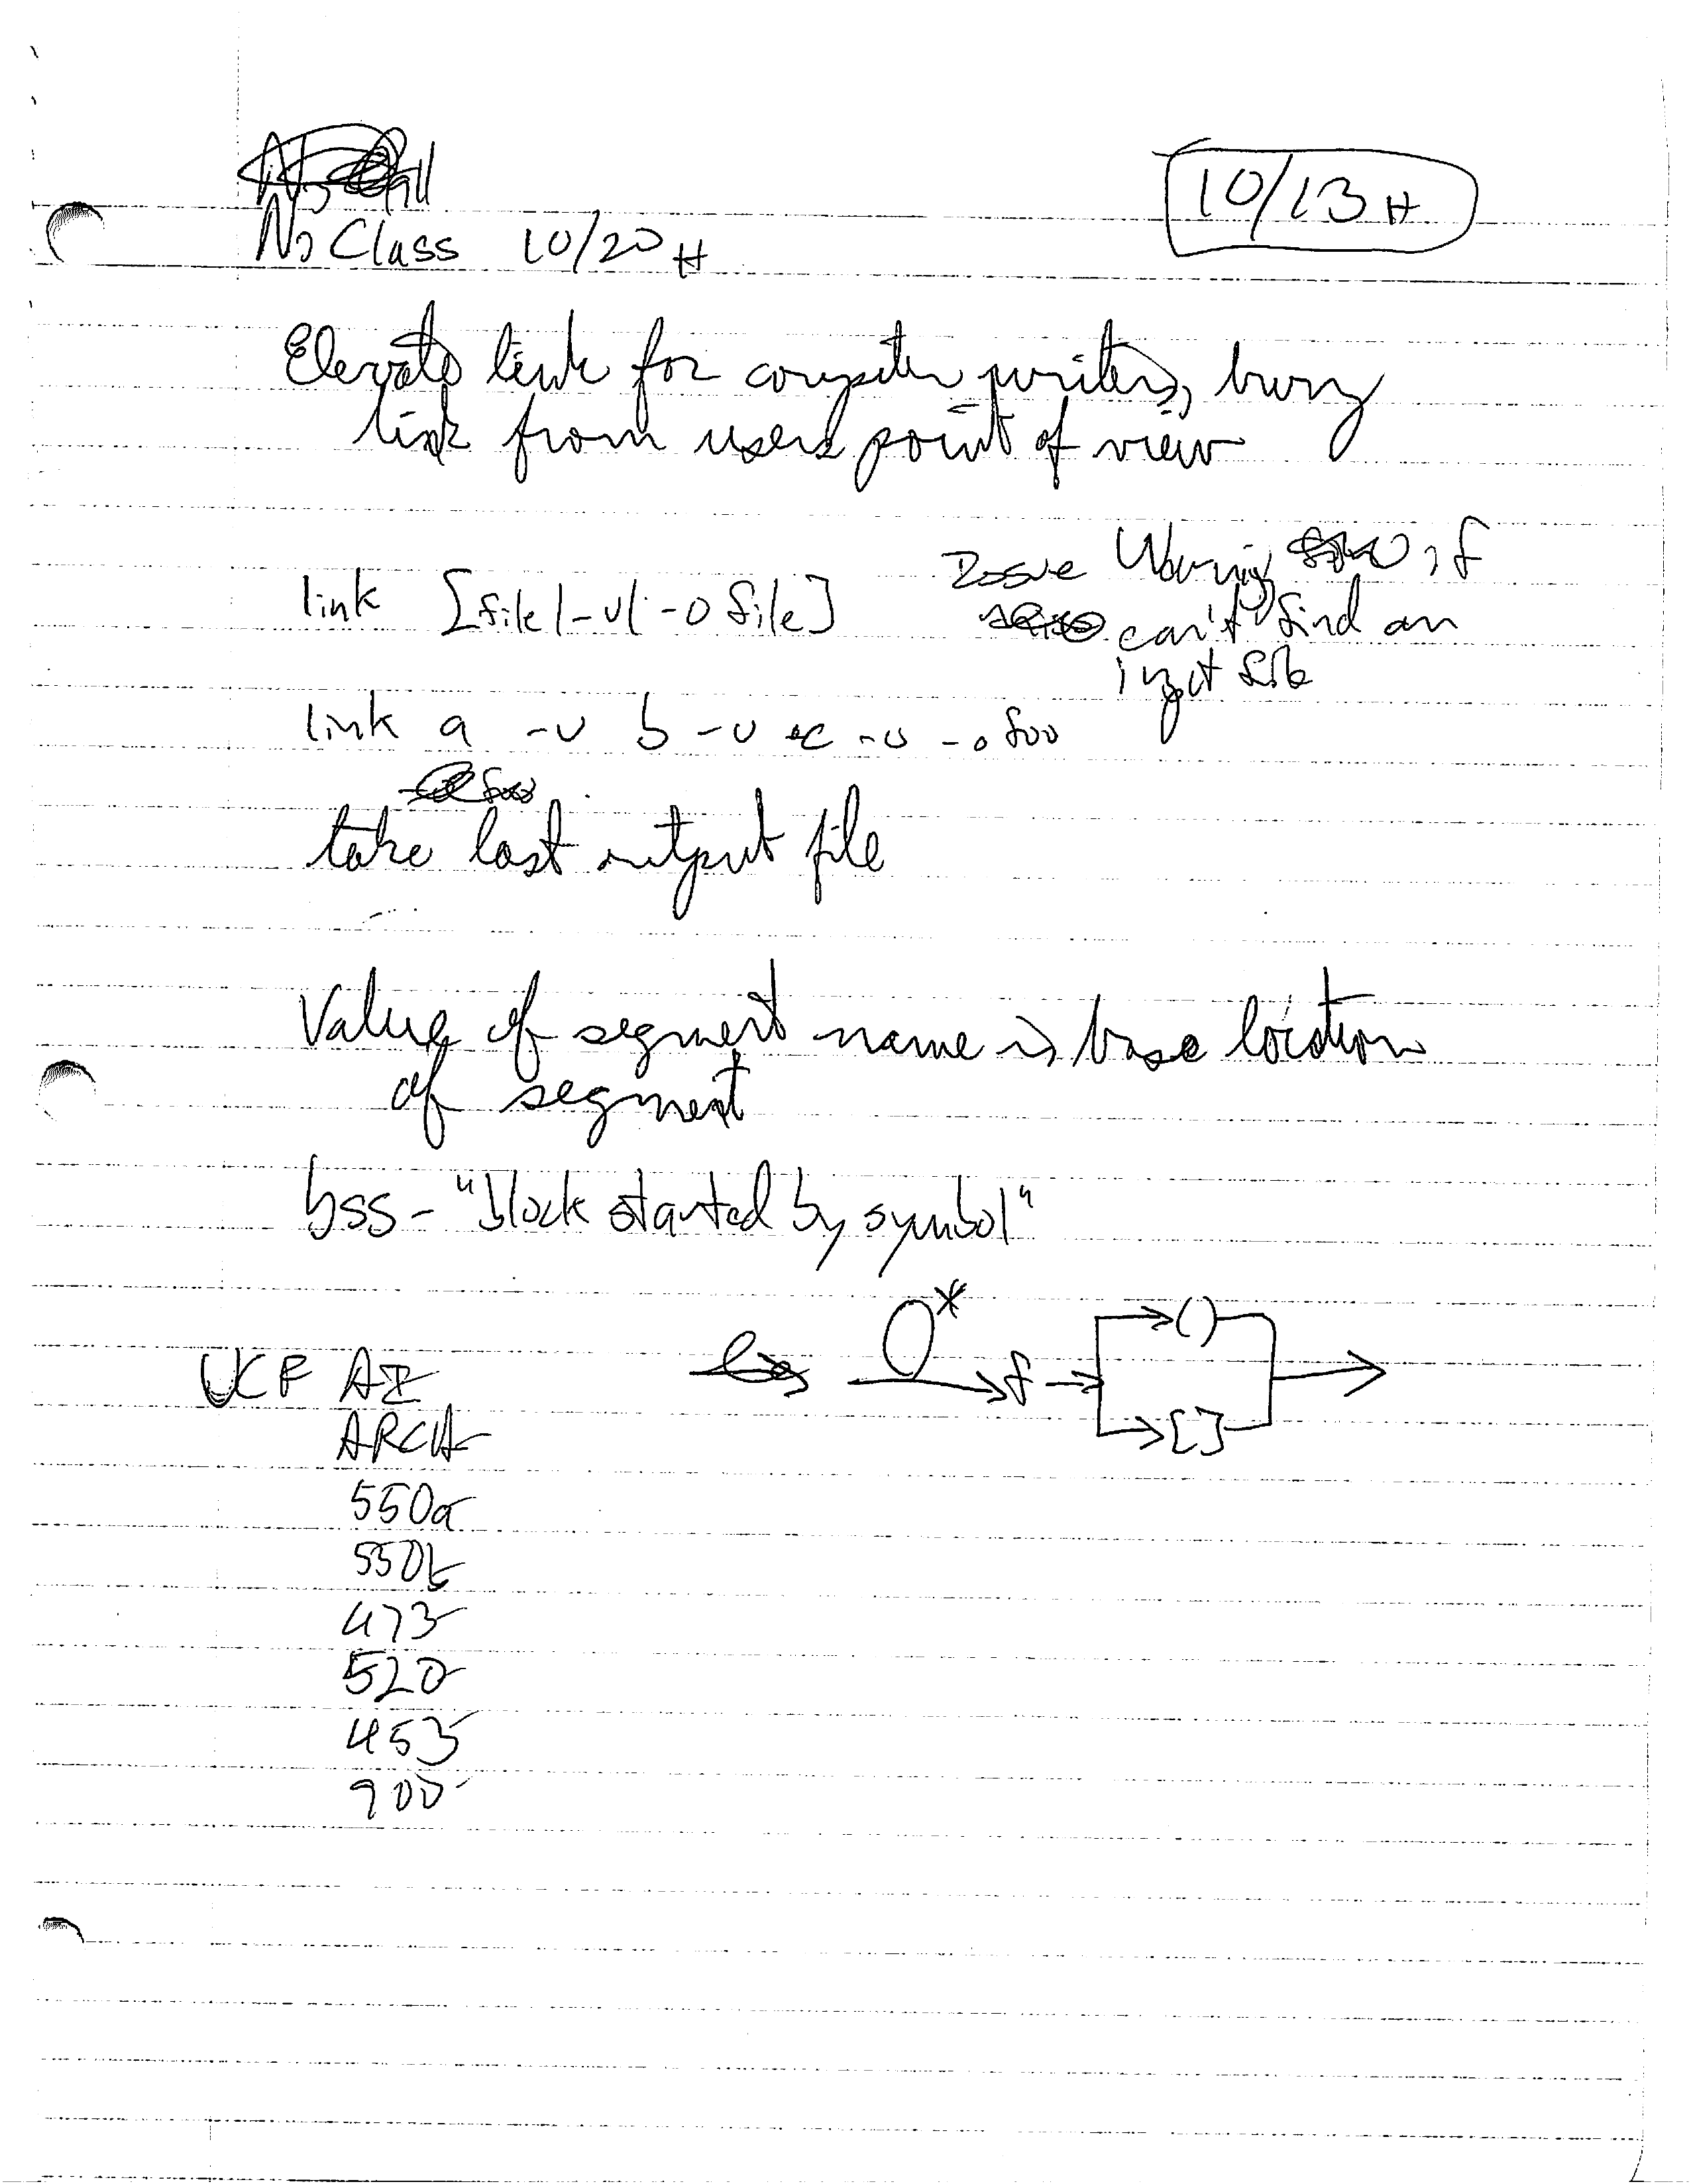 10/13 H
No Class 10/20 H
Elevate link for computer writers, bury
link from users point of view
link [file|-v|-o file]
Issue Warning if
can't find an
input file
link a -v b -v c -v -o foo
take last output file
Value of segment name is base location
of segment
bss - "block started by symbol"
* f () []
UCF AI
ARCH
550a
550b
473
520
453
900